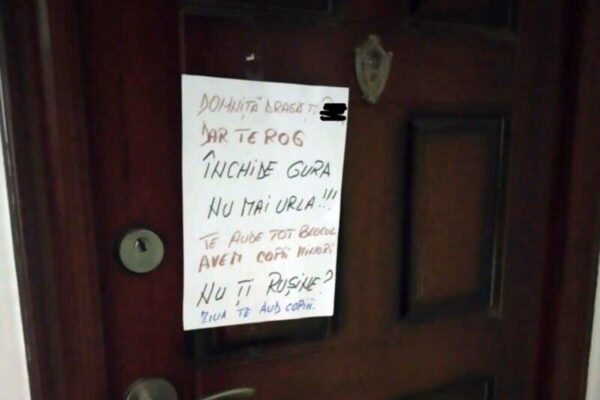 DOMNIȚĂ DRAGĂ, Ț
DAR TE ROG
ÎNCHIDE GURA
NU MAI URLA!!!
TE AUDE TOT BLOCUL
AVEM COPII MINORI
NU ȚI RUȘINE?
ZIUA TE AUD COPIII.